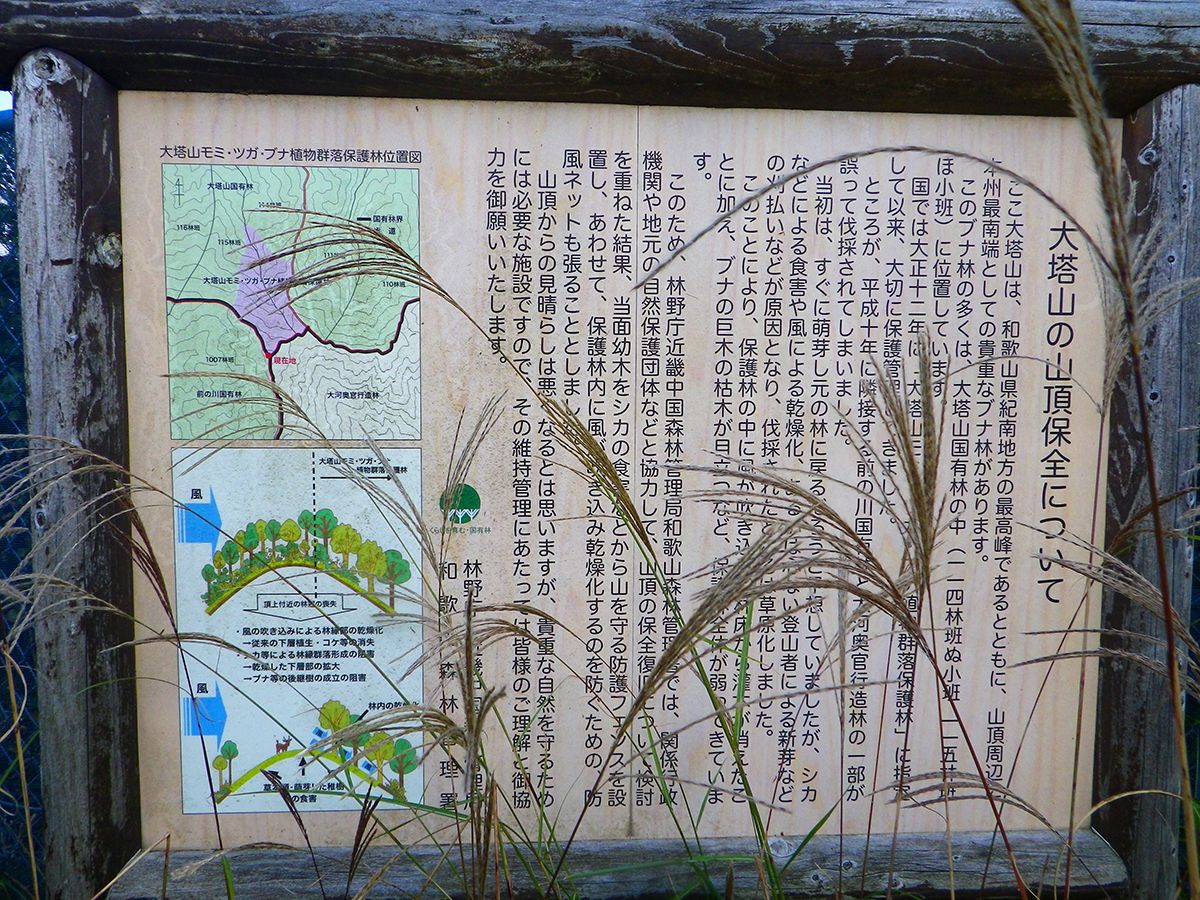 大塔山の山頂保全について
ここ大塔山は、和歌山県紀南地方の最高峰であるとともに、山頂周辺
本州最南端としての貴重なブナ林があります。
このブナ林の多くは、大塔山国有林の中(一一四林班ぬ小班、一一五林班
ほ小班)に位置しています。
国では大正十二年に「大塔山モ 植 群落保護林」に指定
して以来、大切に保護管理 きました。
ところが、平成十年に隣接する前の川国 と 河奥官行造林の一部が
誤って伐採されてしまいました。
当初は、すぐに萌芽し元の林に戻る 想していましたが、シカ
などによる食害や風による乾燥化、 ない登山者による新芽など
の刈払いなどが原因となり、伐採された 草原化しました。
このことにより、保護林の中に風が吹き込 床から 消えたこ
とに加え、ブナの巨木の枯木が目立つなど、 全体が弱 きていま
す。
このため、林野庁近畿中国森林管理局和歌山森林管理署では、関係行政
機関や地元の自然保護団体などと協力して、山頂の保全復 につい 検討
を重ねた結果、当面幼木をシカの食 から山を守る防護フェンスを設
置し、あわせて、保護林内に風 吹き込み乾燥化するのを防ぐための 防
風ネットも張ることとしま
山頂からの見晴らしは悪 なるとは思いますが、貴重な自然を守るため
には必要な施設ですので、その維持管理にあたっては皆様のご理解 御協
力を御願いいたします。
林野 管理局
和歌 森林 理署
国有林
大塔山モミ・ツガ・ブナ植物群落保護林位置図
大塔山国有林
国有林界
116林班
115林班
110林班
大塔山モミ・ツガ・ブナ植
現在地
1007林班
前の川国有林
大河奥官行造林
大塔山モミ・ツガ・
植物群落 護林
風
頂上付近の林 の喪失
・風の吹き込みによる林縁部の乾燥化
→従来の下層植生・コケ等の消失
カ等による林縁群落形成の阻害
→乾燥した下層部の拡大
→ブナ等の後継樹の成立の阻害
風
林内の乾燥化
萌芽した稚樹
の食害